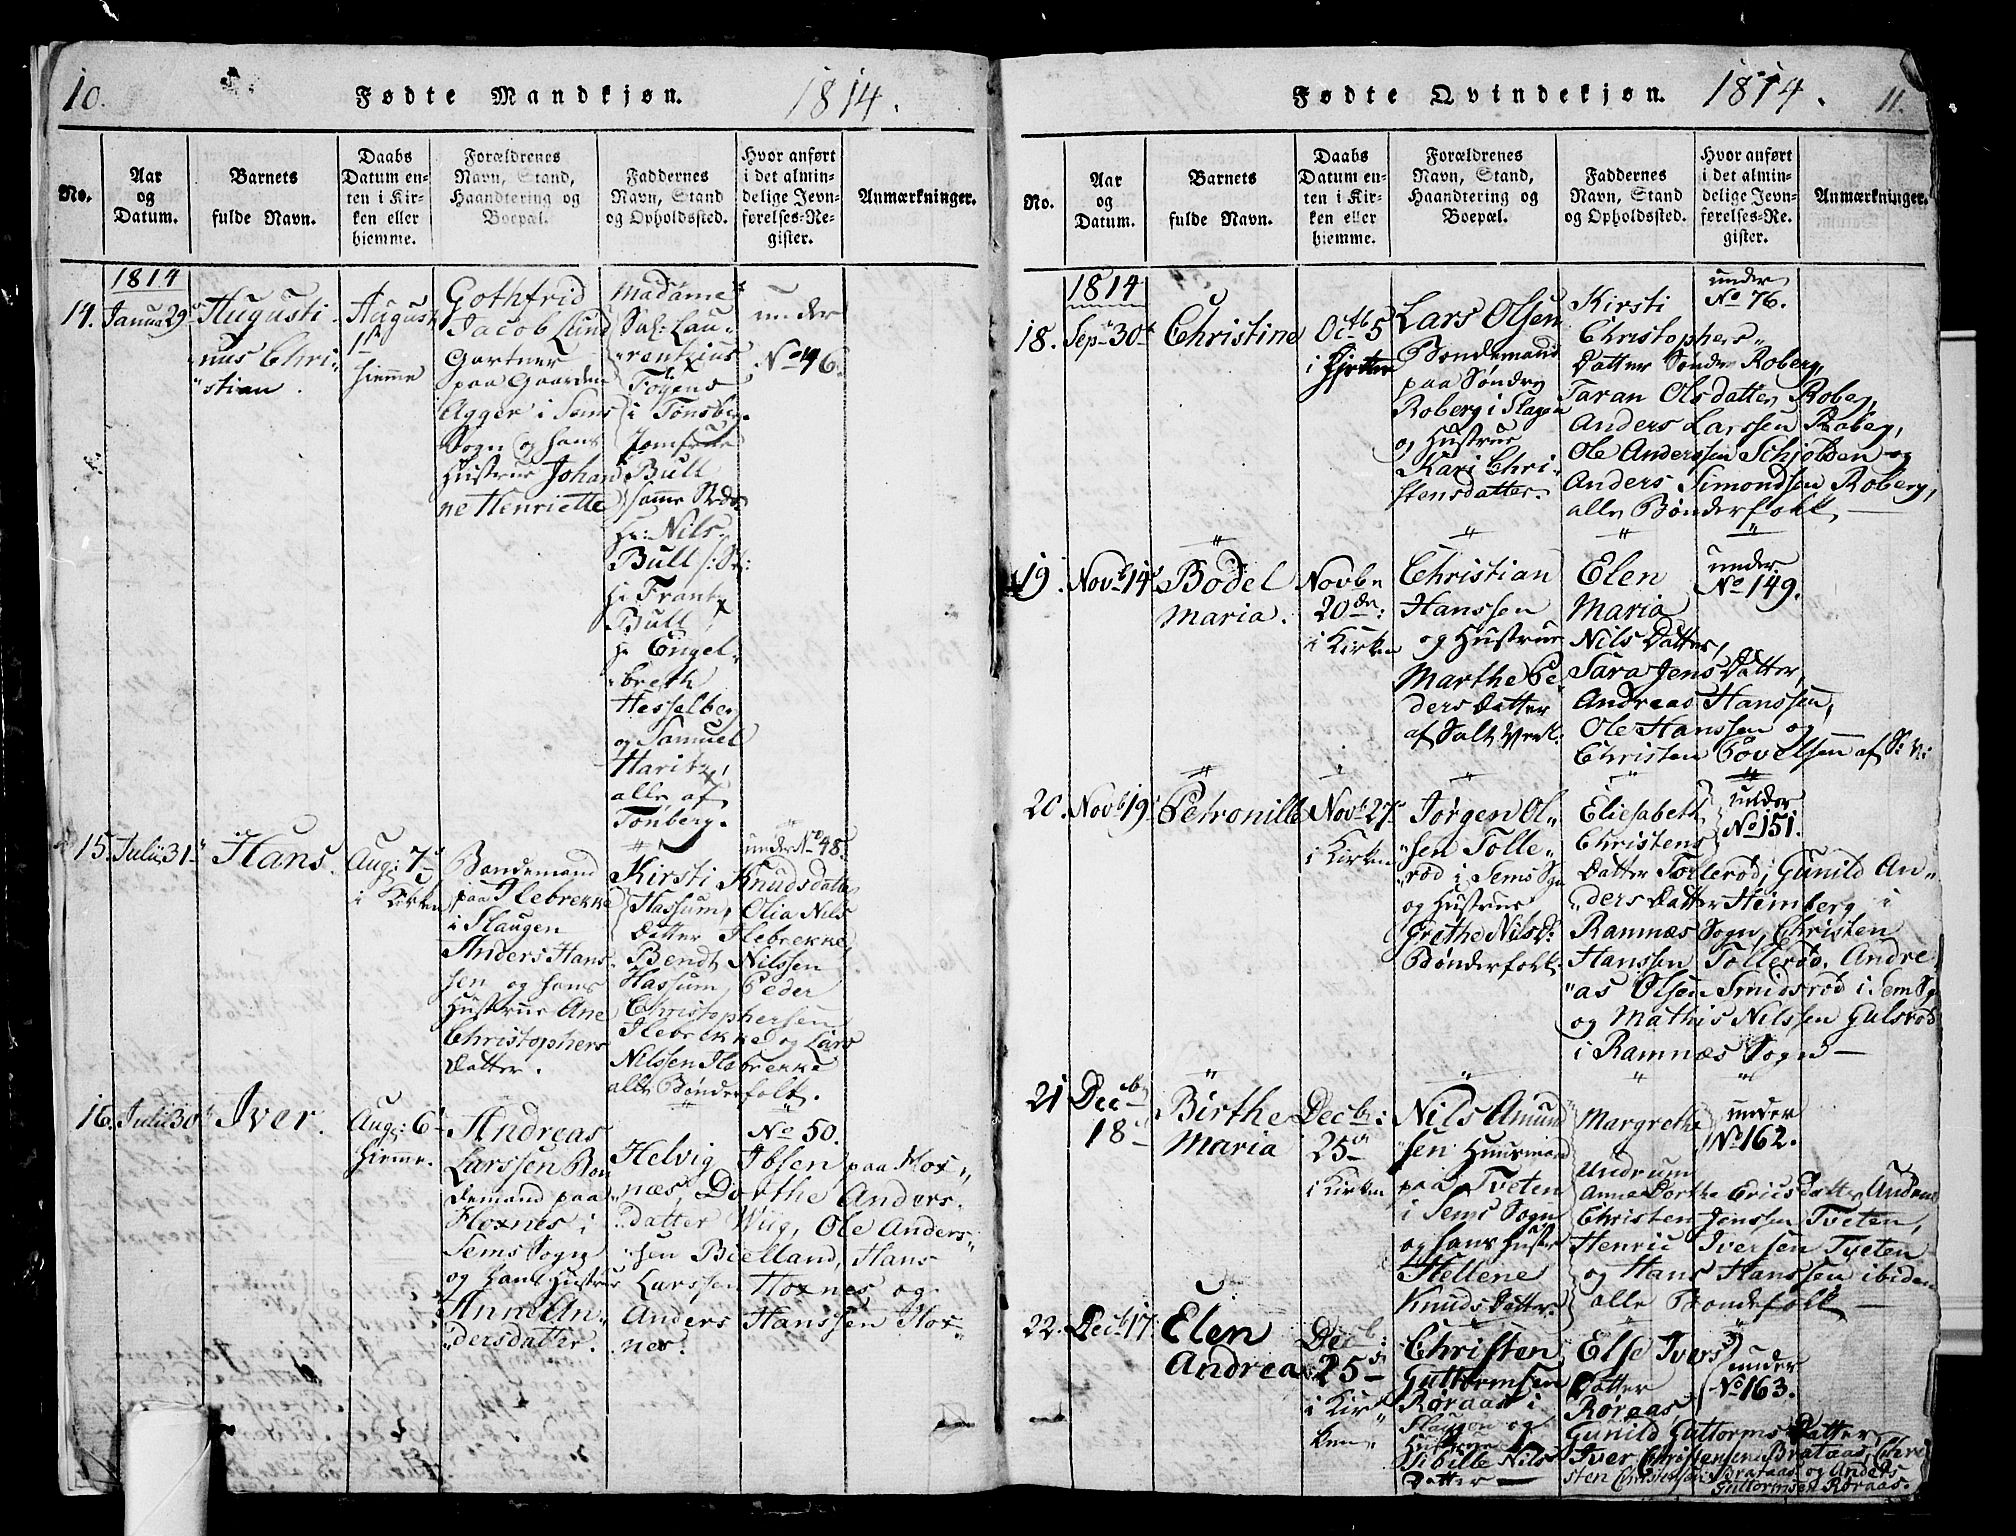 10.
Fødte Mandkjøn.
1814.
No.
Aar
og
Datum.
Barnets
fulde Navn.
Daabs
Datum en-
ten i Kir-
ken eller
hiemme.
Forældrenes
Navn, Stand,
Haandtering og
Boepæl.
Faddernes
Navn, Stand
og Opholdssted.
Hvor anført
i det almin-
delige Jevn-
førelses-Re-
gister.
Anmærkninger.
1814
14.
Janua 29
Augusti
nus Chri-
"stian.
August
1st
hiemme
Gothfrid
Jacob Lund
Gartner
paa Gaarden
Agger i Sems
Sogn og hans
Hustrue Johan
ne Henriette
Madame
Sal: Lau-
"rentzius
Foyens
i Tønsberg.
Jomfrue
Bull
samme Sted.
Hr: Nils
Bull
Hr Frantz
Bull,
Hr Engel-
"breth
Hesselberg
og Samuel
Haritz,
alle af
Tonberg.
under
No 46.
15.
Julii 31
Hans.
Aug: 7
i Kirken
Bondemand
paa Ilebrekke
i Slaugen
Anders Hans-
sen og hans
Hustrue Ane
Christophers
Datter.
under No 48.
Kirsti Knudsdatter
Hassum, Olia Nils
Datter Ilebrekke,
Bendt Nilssen
Hassum, Peder
Christophersen
Ilebrekke og Lars
Nilssen Ilebrekke
alle Bønderfolk.
16.
Julii 30
Iver.
Aug: 6
hiemme.
Andreas
Larssen Bon
demand paa
Hoxnes i
Sems Sogn
og hans Hustrue
Anne An-
"dersdatter.
No 50.
Helvig Ibsen paa Hox"
"næs, Dorthe Anders.
"datter Wiig, Ole Anders"
"sen Bielland, Hans
Larssen Hoxnes og
Anders Hanssen Hox-
nes.
Fødte Qvindekjøn.
1814.
11.
No.
Aar
og
Datum.
Barnets
fulde Navn.
Daabs
Datum en-
ten i Kir-
ken eller
hiemme.
Forældrenes
Navn, Stand,
Haandtering og
Boepæl.
Faddernes
Navn, Stand
og Opholdssted.
Hvor anført
i det almin-
delige Jevn-
førelses-Re-
gister.
Anmærkninger.
1814
18.
Sep 30
Christine
Octb 5
i
Lars Olsen
Bondemand
paa Søndre
Roberg i Slagen
og Hustrue
Kari Chri-
stensdatter.
Kirsti
Christophers"
Datter Søndre Roberg,
Taran Olsdatter Roberg,
Anders Larssen Roberg,
Ole Anderssen Schjolden og
Anders Simondsen Roberg,
alle Bønderfolk.
under
No 76.
19.
Novb 14
Bodel
Maria.
Novbr
20de:
i Kirken
Christian
Hanssen
og Hustrue
Marthe Pe-
ders Datter
af Salt Verk:
Elen
Maria
Nils Datter,
Sara Jens Datter,
Andreas Hanssen,
Ole Hanssen og
Christen Povelsen af S: V:
under
No 149.
20.
Novb 19
Petronille
Novb 27
i Kirken
Jørgen Ol"
"sen Tolle-
"rød i Sems Sogn
og Hustrue
Grethe Nilsd:
Bønderfolk.
Eliesabeth
Christens
Datter Tollerød, Gunild An"
"ders Datter Hemberg i
Ramnæs Sogn, Christen
Hanssen Tollerød, Andre
"as Olsen Smidsrød i Sem Sogn
og Mathis Nilssen Gulsrød
i Ramnæs Sogn
under
No 151.
21
Decb
18
Birthe
Maria
Decb:
25
i Kirken
Nils Amund
"sen Huusmand
paa Tveten
i Sems Sogn
og hans Hustr
Hellene
Knuds Datter.
Margrethe
Undrum
Anne Dorthe Erics Datter
Christen Jenssen Tveten,
Henric Iversen Tveten
og Hans Hanssen ibidem
alle Bondefolk
under
No 162.
22.
Decb 17.
Elen
Andrea
Decb:
25
i Kir"
ken
Christen
Guttormsen
Røraas i
Slaugen og
Hustrue
Sibille Nils
Datter
Else Ivers
Datter
Røraas,
Gunild Guttorms Datter,
Iver Christensen Brataas, Chri
sten Christensen Brataas og Anders
Guttormsen Røraas.
under
No 163.